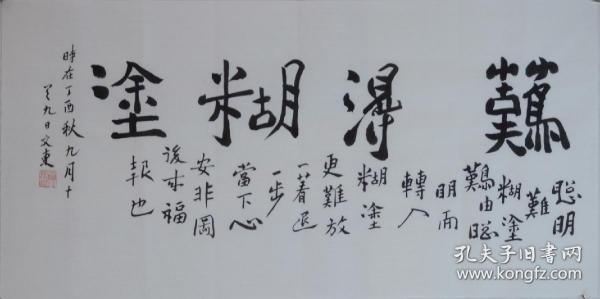 難淂糊塗
聪明
難
糊塗
難由聪
明而
轉入
糊塗
更難放
一著退
一步
當下心
安非圖
後来福
報也
時在丁酉秋九月十
九日文東
孔夫子旧书网
www.kongfz.com